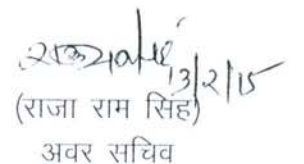 13/2/15
(राजा राम सिंह)
अवर सचिव